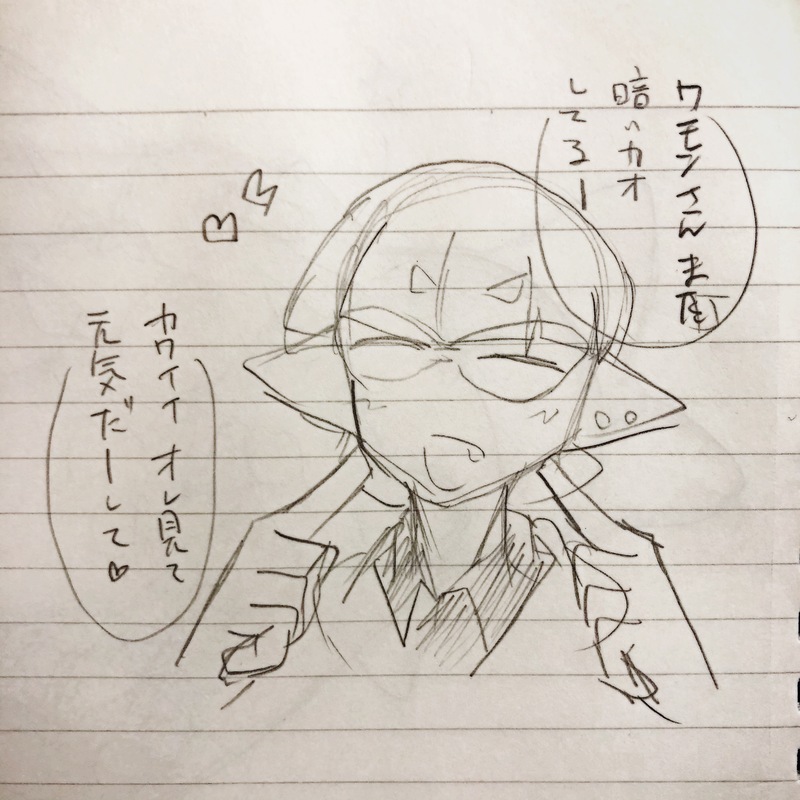 ワモンさん
暗いカオ
してるー
カワイイオレ見て
元気だーして♡